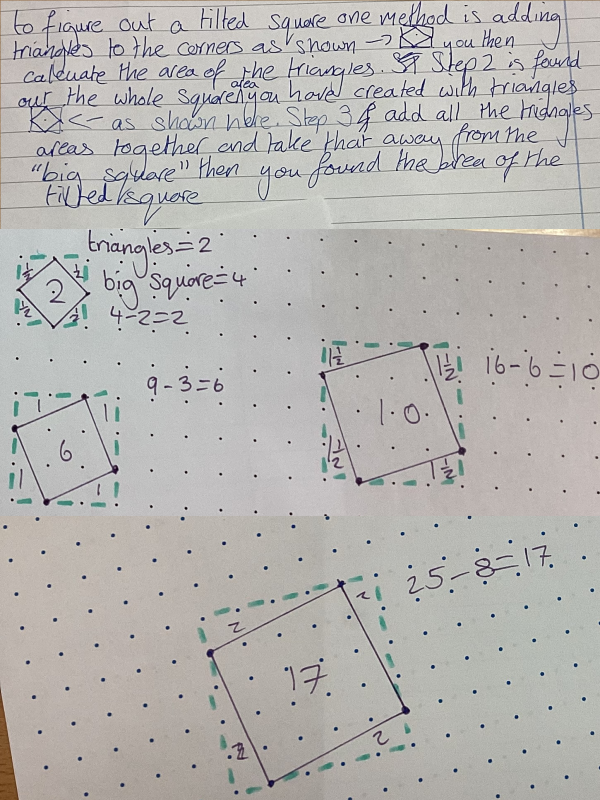 to figure out a tilted square one method is adding
triangles to the corners as shown → you then
calculate the area of the triangles. Step 2 is found
out the whole square area you have created with triangles
<- as shown here. Step 3 add all the triangles
areas together and take that away from the
"big square" then you found the area of the
tilted square
triangles = 2
½ ½
2
big square = 4
½ ½
4-2=2
1½
1½
16-6=10
9-3=6
1 1
10
6
1½
1½
1 1
25-8=17
2
2
17
2
2